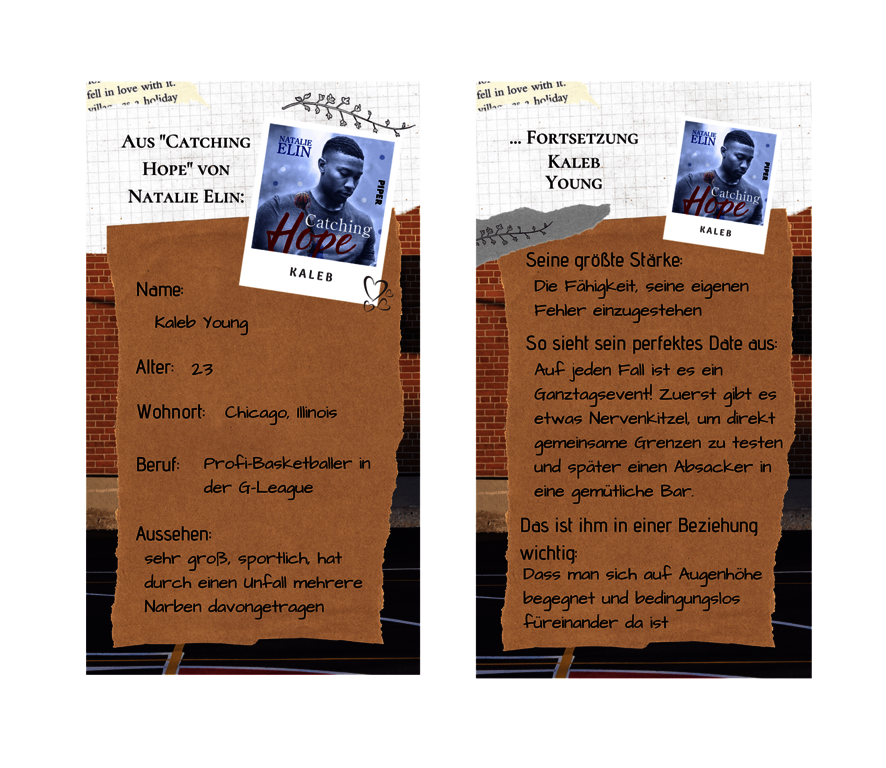 fell in love with it.
holiday
Aus "Catching
Hope" von
Natalie Elin:
NATALIE
ELIN
PIPER
Catching
Hope
KALEB
Name:
Kaleb Young
Alter: 23
Wohnort: Chicago, Illinois
Beruf: Profi-Basketballer in
der G-League
Aussehen:
sehr groß, sportlich, hat
durch einen Unfall mehrere
Narben davongetragen
fell in love with it.
holiday
... Fortsetzung
Kaleb
Young
NATALIE
ELIN
PIPER
Catching
Hope
KALEB
Seine größte Stärke:
Die Fähigkeit, seine eigenen
Fehler einzugestehen
So sieht sein perfektes Date aus:
Auf jeden Fall ist es ein
Ganztagsevent! Zuerst gibt es
etwas Nervenkitzel, um direkt
gemeinsame Grenzen zu testen
und später einen Absacker in
eine gemütliche Bar.
Das ist ihm in einer Beziehung
wichtig:
Dass man sich auf Augenhöhe
begegnet und bedingungslos
füreinander da ist